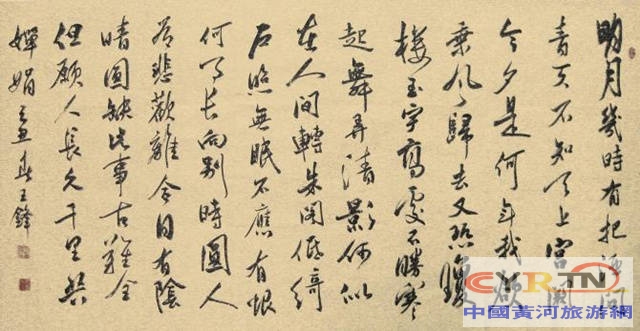 明月幾時有把酒問
青天不知天上宮闕
今夕是何年我欲
乘風歸去又恐瓊
樓玉宇高處不勝寒
起舞弄清影何似
在人間轉朱閣低綺
户照無眠不應有恨
何事長向別時圓人
有悲歡離合月有陰
晴圓缺此事古難全
但願人長久千里共
嬋娟 王鋒
CRTN
中國黃河旅游網